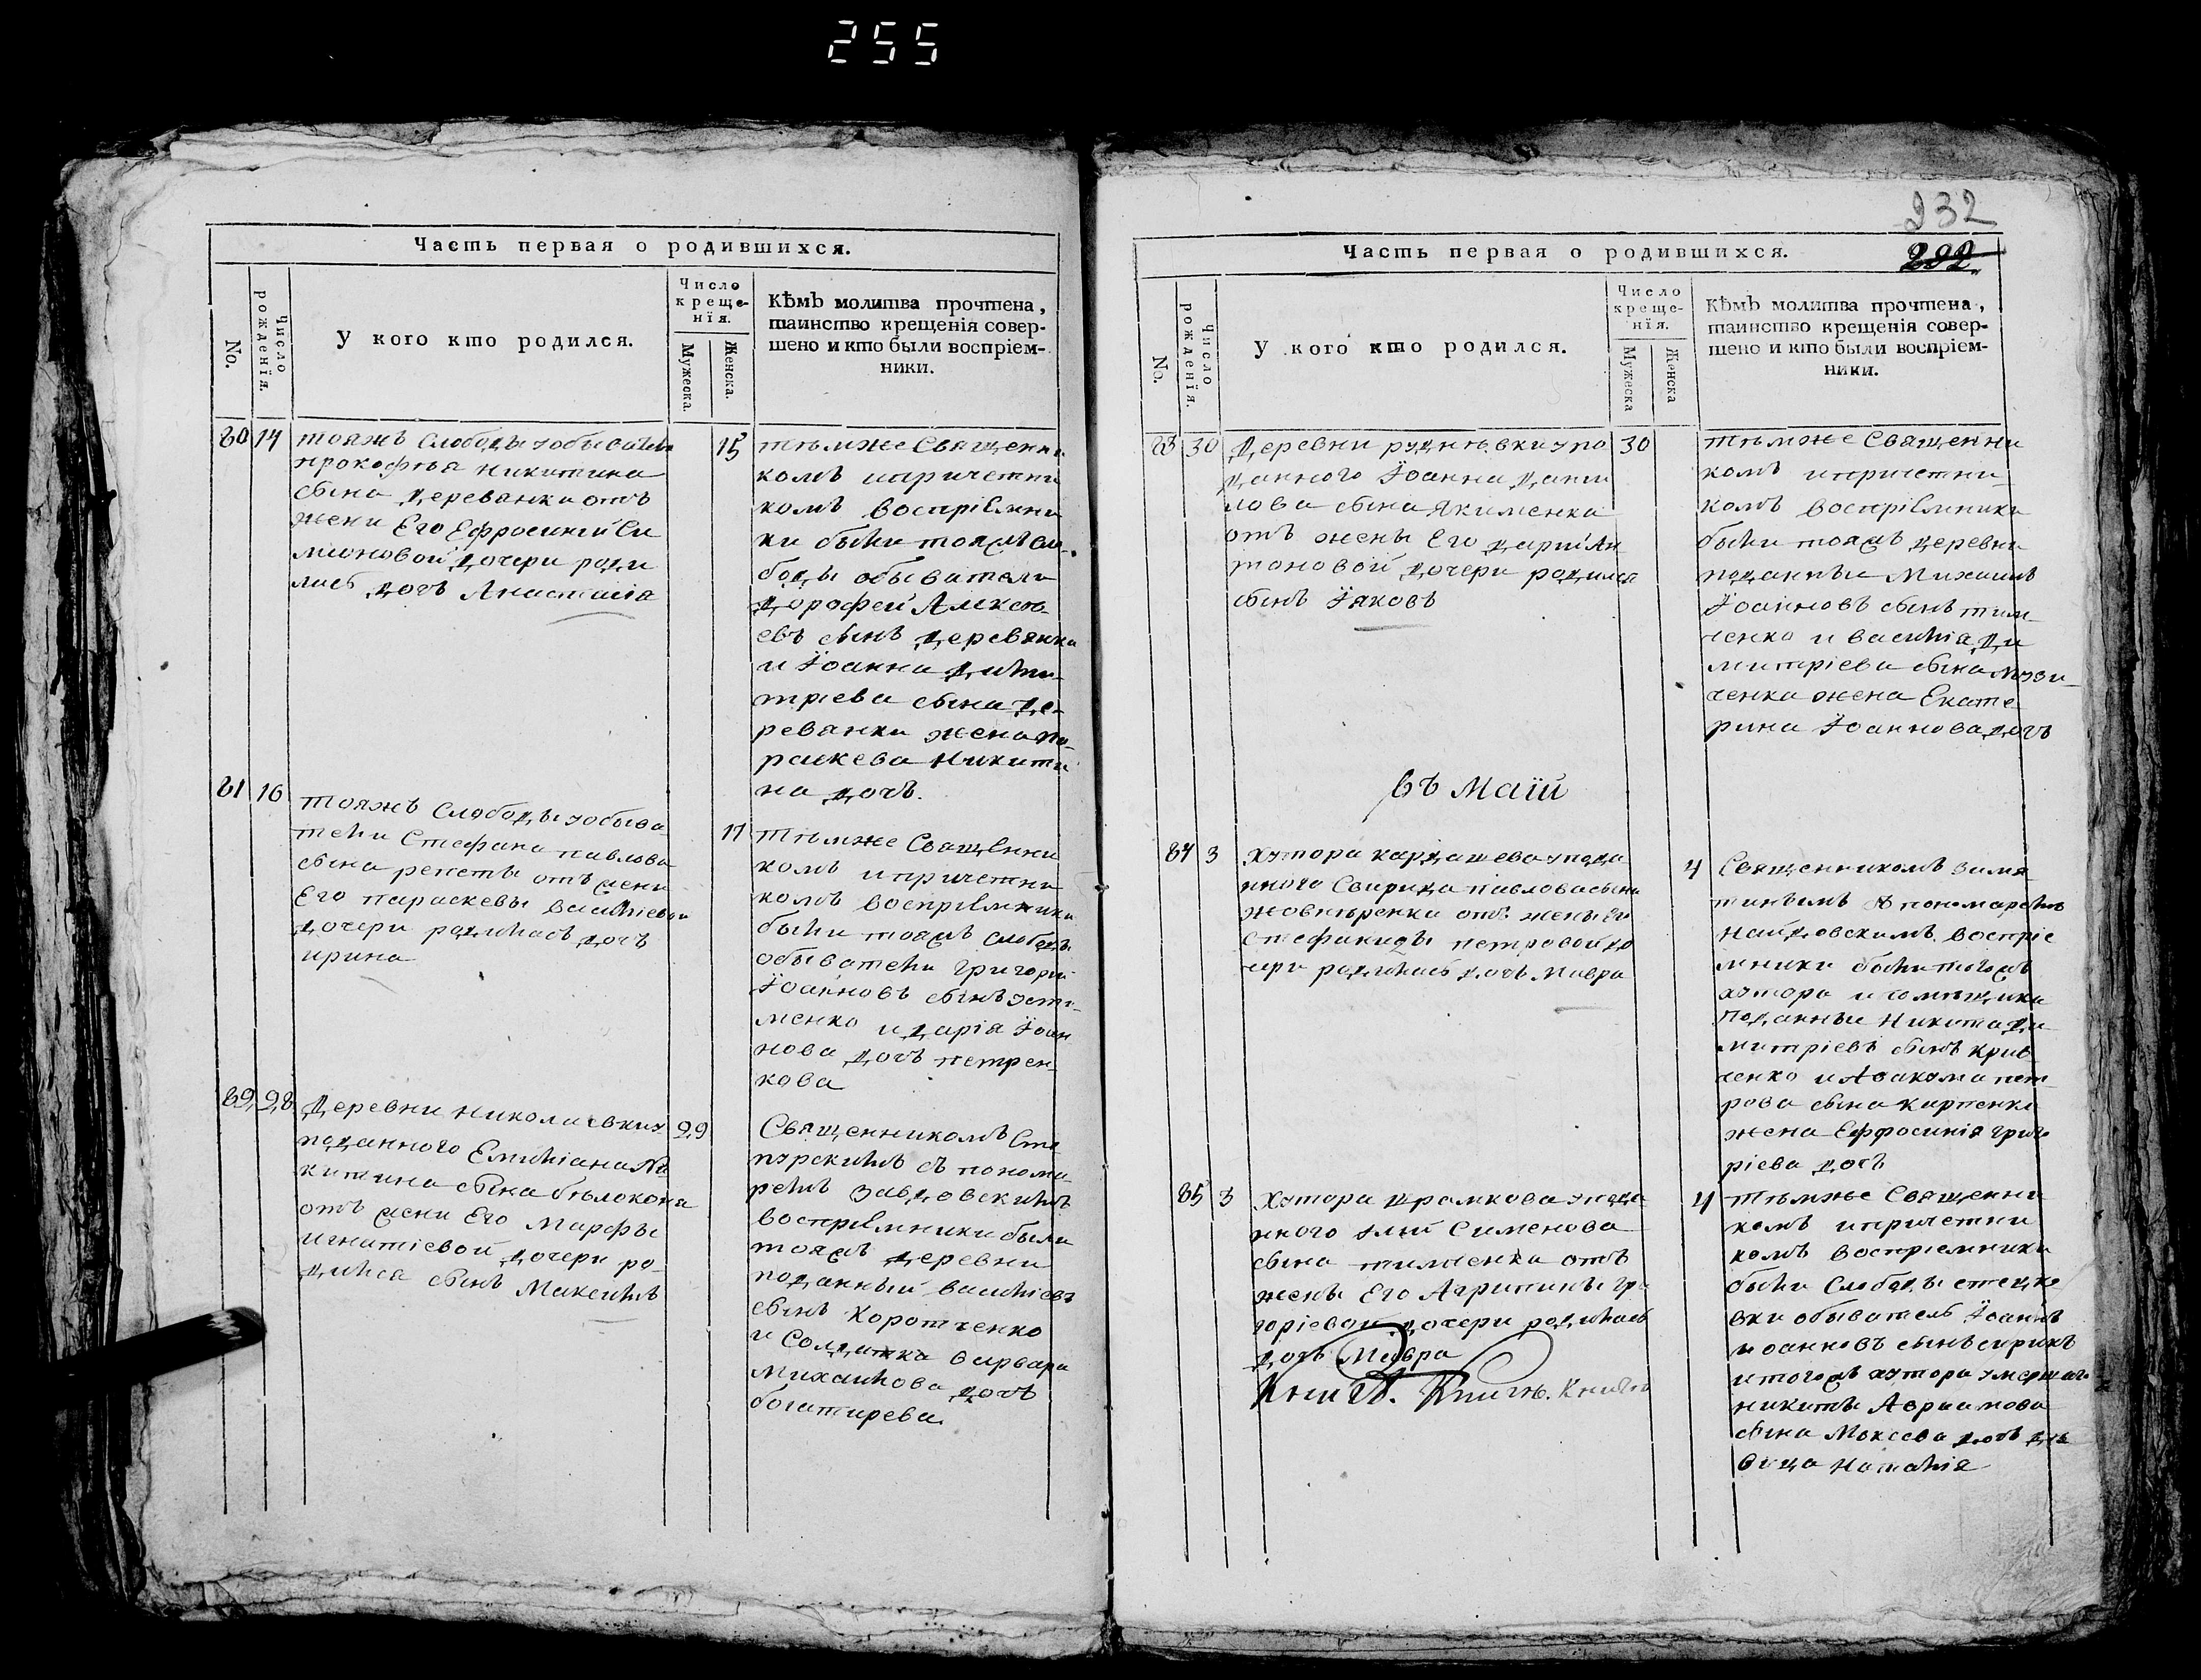 255
Часть первая о родившихся.
No.
Число рожденїя.
У кого кто родился.
Число
креще-
нїя.
Мужеска.
Женска.
Кѣмъ молитва прочтена,
таинство крещенія совер-
шено и кто были воспріем-
ники.
80 14 тояжъ слободы уобывателя
прокофья никитина
сына деревянки отъ
жени Его Ефросинїи Си
мионовой дочери роди
лась дочъ Анастасїя
15 тѣмже Священни
комъ ипричетни
комъ воспрїемни
ки были тояжъ сло-
боды обыватели
Дорофей Алексѣ
евъ сынъ деревянка
и Їоанна Дими-
трїева сына де-
ревянки жена па-
раскева Никити
на дочъ.
81 16 тояжъ Слободы уобыва
тели Стефана павлова
сына репеты отъ жени
Его параскевы василїевой
дочери родилась дочъ
ирина
17 тѣмже Священни
комъ ипричетни
комъ воспрїемники
были тояжъ слободы
обыватели григорїй
Їоанновъ сынъ усти-
менко и дарїя Їоан
нова дочъ петрен
кова
82 28 Деревни николаевки у
подданного Емилїана Ни
китина сына бѣлокона
отъ жени Его Марфы
игнатїевой дочери ро-
дился сынъ Максимъ
29 Священникомъ
съ понома
ремъ Завдовскимъ
воспрїемники были
тояжъ деревни
поданный василїевъ
сынъ Коротченко
и Солдатка варвара
Михайлова дочъ
богатирева.
232
292.
Часть первая о родившихся.
No.
Число рожденїя.
У кого кто родился.
Число
креще-
нїя.
Мужеска
Женска
Кѣмъ молитва прочтена,
таинство крещенія совер-
шено и кто были воспріем-
ники.
83 30 Деревни руднѣвки упо
данного Їоанна Дани
лова сына Якименка
отъ жены Его дарїи Ан
тоновой дочери родился
сынъ Їяковъ
30 тѣмже Священни
комъ ипричетни
комъ воспрїемники
были тояжъ деревни
поданные Михаилъ
Їоанновъ сынъ тим-
ченко и василїя Ди
митрїева сына
ченка жена Екате
рина Їоаннова дочъ
въ Маїй
84 3 хутора кардашева упода
нного Свирида павлова сына
жовнѣренка отъ жены Его
Стефаниды петровой до
чери родилась дочъ Мавра
4 Священникомъ Замя
тинымъ съ пономаремъ
Найдовскимъ воспрїе
мники были тогожъ
хутора и помѣщика
поданные Никита Ди
митрїевъ сынъ Крив
ченко и Авакома пет
рова сына карпенка
жена Ефросинїя григо
рїева дочъ
85 3 Хутора храмкова упода
нного Илїи Сименова
сына тимченка отъ
жены Его Агрипины гри
горїевой дочери родилась
дочъ Мавра
4 тѣмже Священни
комъ ипричетни
комъ воспрїемники
были Слободы стецко
вки обыватель Їоаннъ
иоанновъ сынъ сирикъ
и тогожъ хутора умершаго
никиты Авраамова
сына Мокеева дочъ дѣ
вица Наталїя